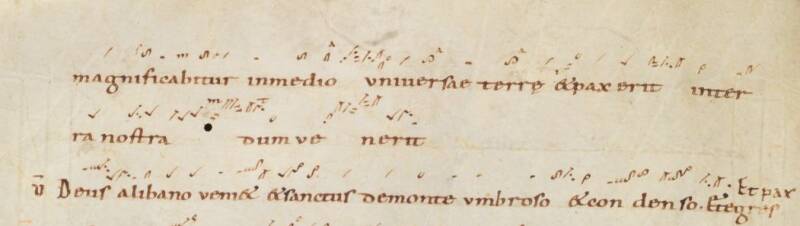 magnificabitur in medio universae terrę & pax erit in ter
ra nostra dum ve nerit
V Deus a libano veni& & sanctus de monte umbroso & con den so. Et pax
Et egres